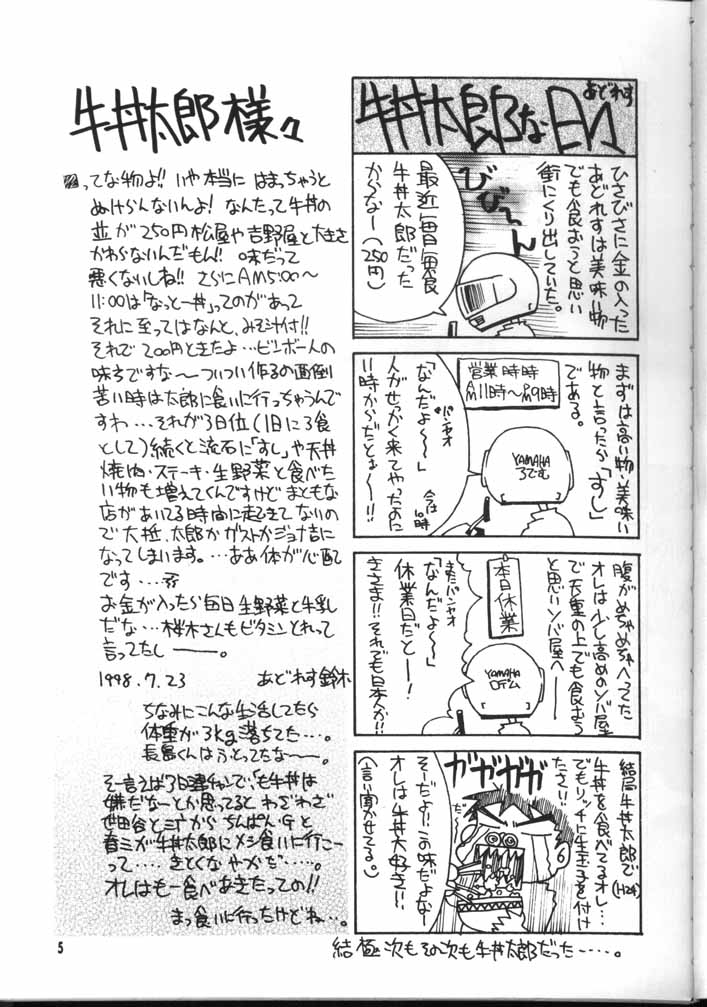 牛丼太郎様々
ってな物よ!!いや本当にはまっちゃうと
ぬけらんないんよ!なんたって牛丼の
並が250円松屋や吉野屋と大きさ
かわらないんだもん!!味だって
悪くないしね!!さらにAM5:00〜
11:00は「なっとー丼」ってのがあって
それに至ってはなんと、みそ汁付!!
それで200円ときたよ…ビンボー人の
味方ですな〜ついつい作るの面倒
苦い時は太郎に食いに行っちゃうんで
すわ…それが3日位(1日に3食
として)続くと流石に「すし」や天丼
焼肉・ステーキ・生野菜と食べた
い物も増えてくんですけどまともな
店があいてる時間に起きてないの
で大抵、太郎かガストかジョナ吉に
なってしまいます。…ああ体が心配
です…
お金が入ったら毎日生野菜と牛乳
だな…桜木さんもビタミンとれって
言ってたし――。
1998.7.23 あどれす鈴木
ちなみにこんな生活してたら
体重が3kg落ちてた…。
長島くんはふとってたな〜〜。
そー言えば3日連チャンで、も牛丼は
嫌だなーとか思ってると わざわざ
世田谷と三丁から ちんぱん・Gと
春ミが牛丼太郎にメシ食いに行こー
って…… きとくな やから だ……。
オレはもー食べあきたっての!!
まっ食いに行ったけどね…。
牛丼太郎な日々
あどれす
ひさびさに金の入った
あどれすは美味い物
でも食おうと思い
街にくり出していた。
びび〜〜ん
最近毎日毎食
牛丼太郎だった
からなー(250円)
まずは高い物・美味い
物と言ったら「すし」
である。
営業時時
AM11時〜PM9時
YAMAHA
ろでむ
「なんだよ〜〜」
パンヤオ
人がせっかく来てやったのに
11時からだとぉ〜!!
今は10時
腹がめちゃめちゃへってた
オレは少し高めのソバ屋
で天重の上でも食おう
と思いソバ屋へ――
本日休業
YAMAHA
ロデム
またパンヤオ
「なんだよ〜〜」
休業日だと――!
きさま!!それでも日本人か!!
結局牛丼太郎で
牛丼を食べてるオレ…
(H24)
でもリッチに生玉子を付け
たさ!!
ガガガガ
だ〜
そーだよ!!この味だよな〜
オレは牛丼大好き!!
(言い聞かせてる。)
結極次もその次も牛丼太郎だった……。
5